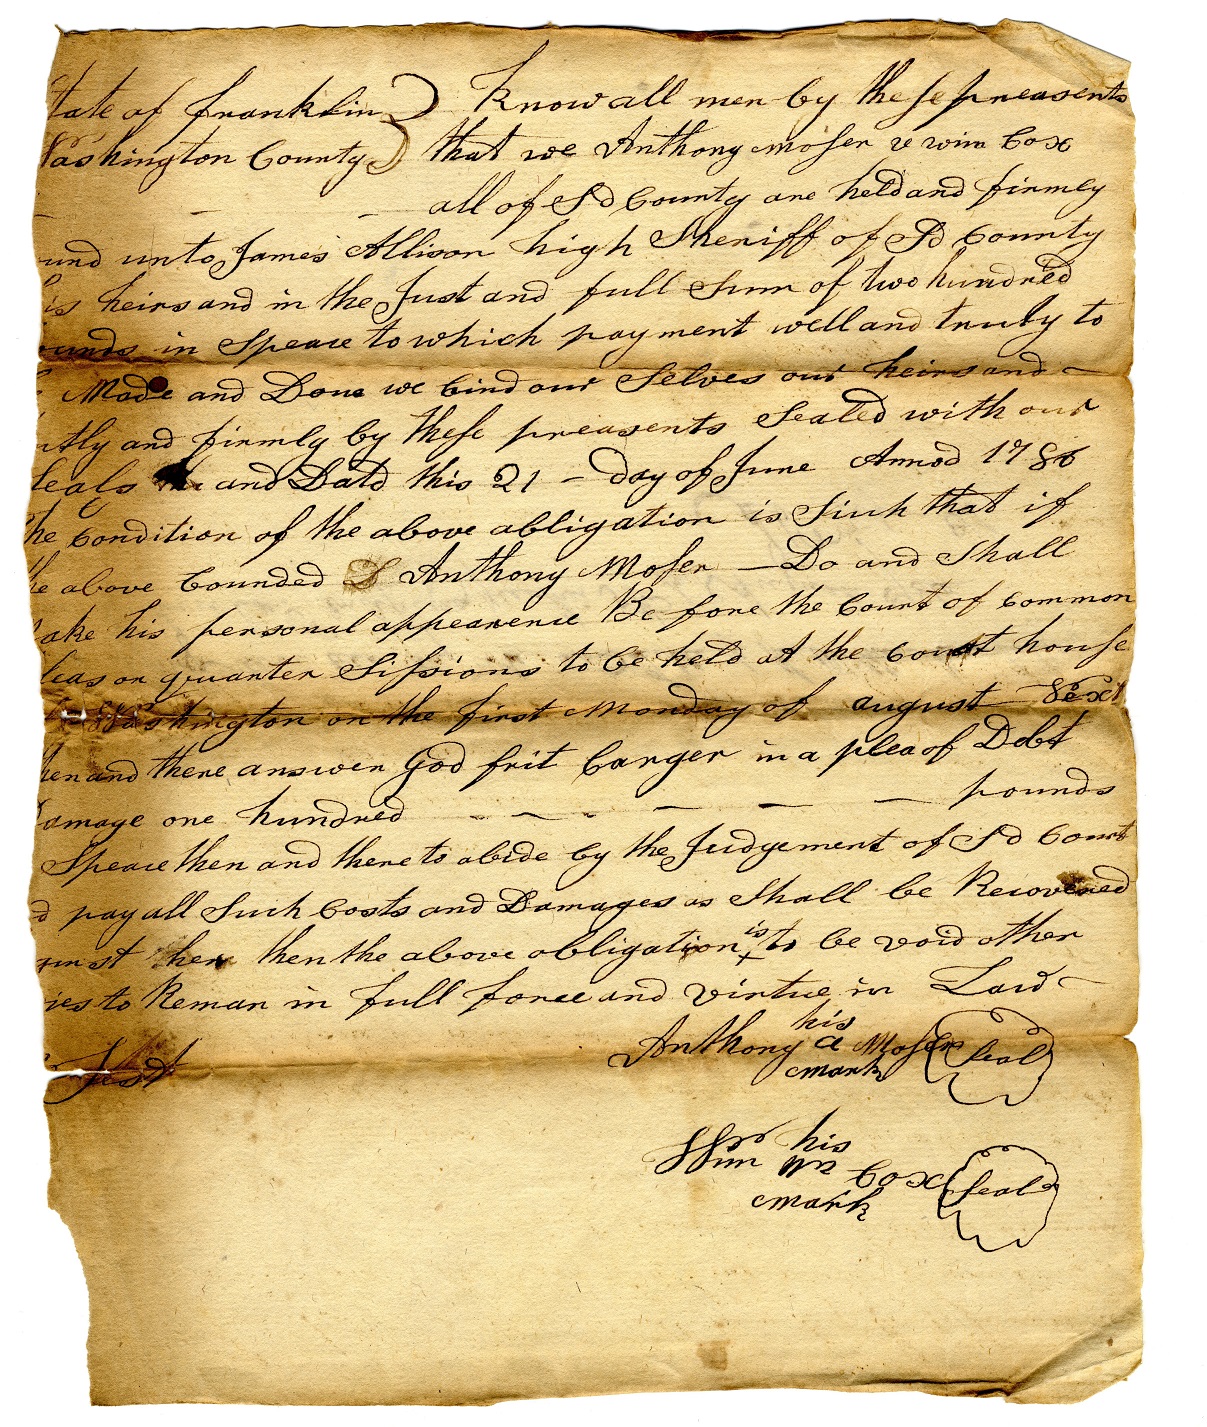 tate of franklin } Know all men by these preasents
Washington County } that we Anthony Moser & wim Cox
all of Sd County are held and firmly
und unto James Allison high Sheriff of Sd County
his heirs and in the Just and full Sum of two hundred
ounds in Speace to which payment well and truly to
Made and Done we bind our Selves our heirs and
ntly and firmly by these preasents Sealed with our
Seals and Datd this 21 - day of June Annod 1786
The Condition of the above obligation is Such that if
the above bounded Anthony Moser - Do and Shall
make his personal appearence Before the Court of Common
leas or quarter Sissions to be held at the Court house
Washington on the first Monday of august Next
hen and there answer God frit Carger in a plea of Debt
Damage one hundred - - - - pounds
Speace then and there to abide by the Judgement of Sd Court
d pay all Such Costs and Damages as Shall be Recovered
ainst then the above obligation is to be void other
ies to Reman in full force and virtue in Law
Test
his
Anthony a Moser Seal
mark
his
Wim Cox Seal
mark